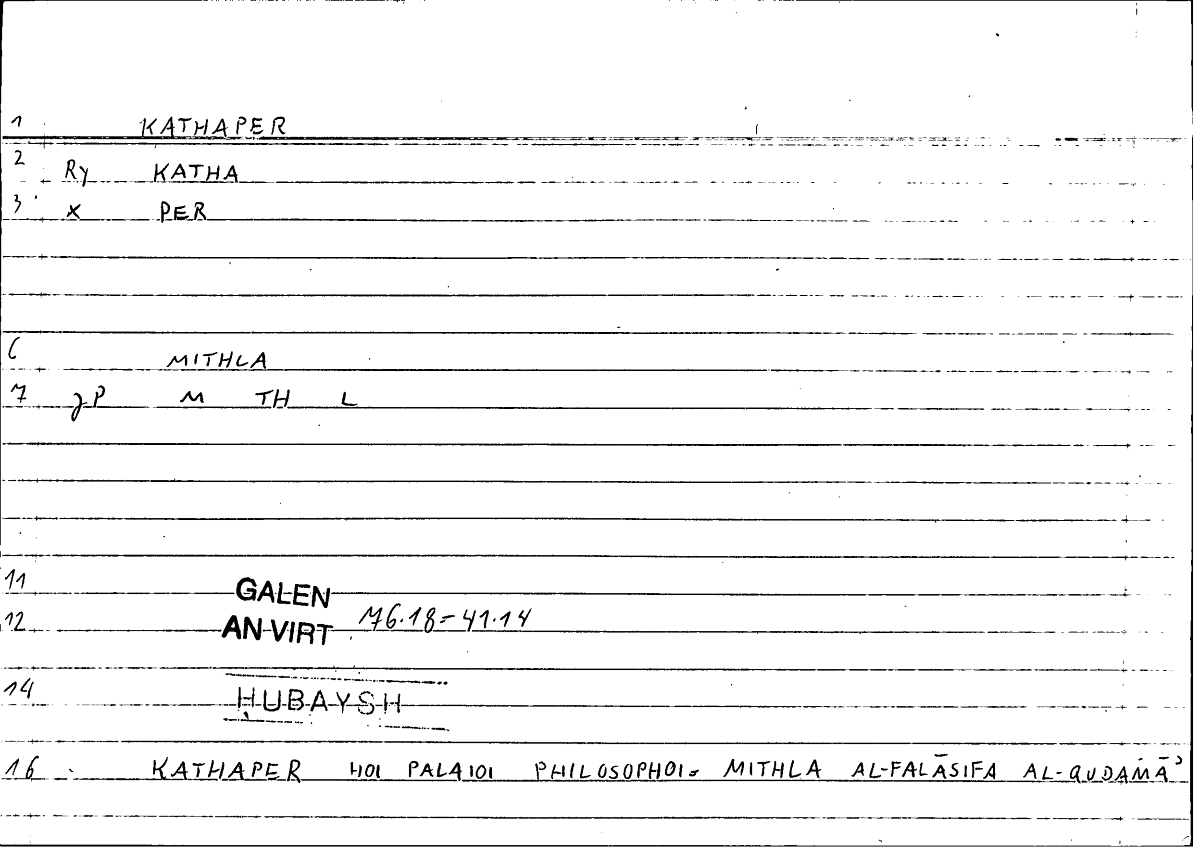 1 KATHAPER
2 Ry KATHA
3 x PER
6 MITHLA
7 gP M TH L
11 GALEN
12 AN VIRT 76.18=41.14
14 ḤUBAYSH
16 KATHAPER HOI PALAIOI PHILOSOPHOI = MITHLA AL-FALĀSIFA AL-QUDAMĀʾ